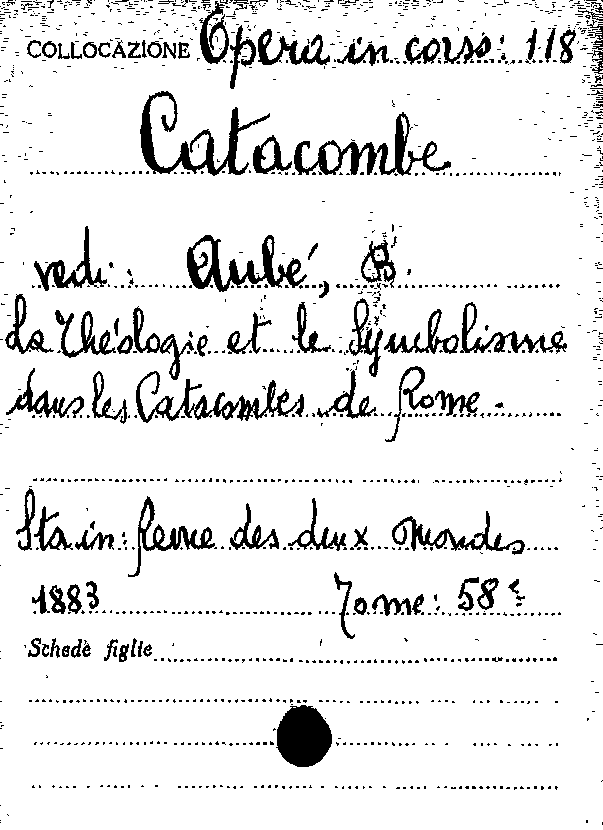 COLLOCAZIONE Opera in corso: 118
Catacombe
vedi: Aubé, B.
La Théologie et le Symbolisme
dans les Catacombes de Rome.
Sta in: Revue des deux Mondes
1883 Tome: 58e
Schede figlie